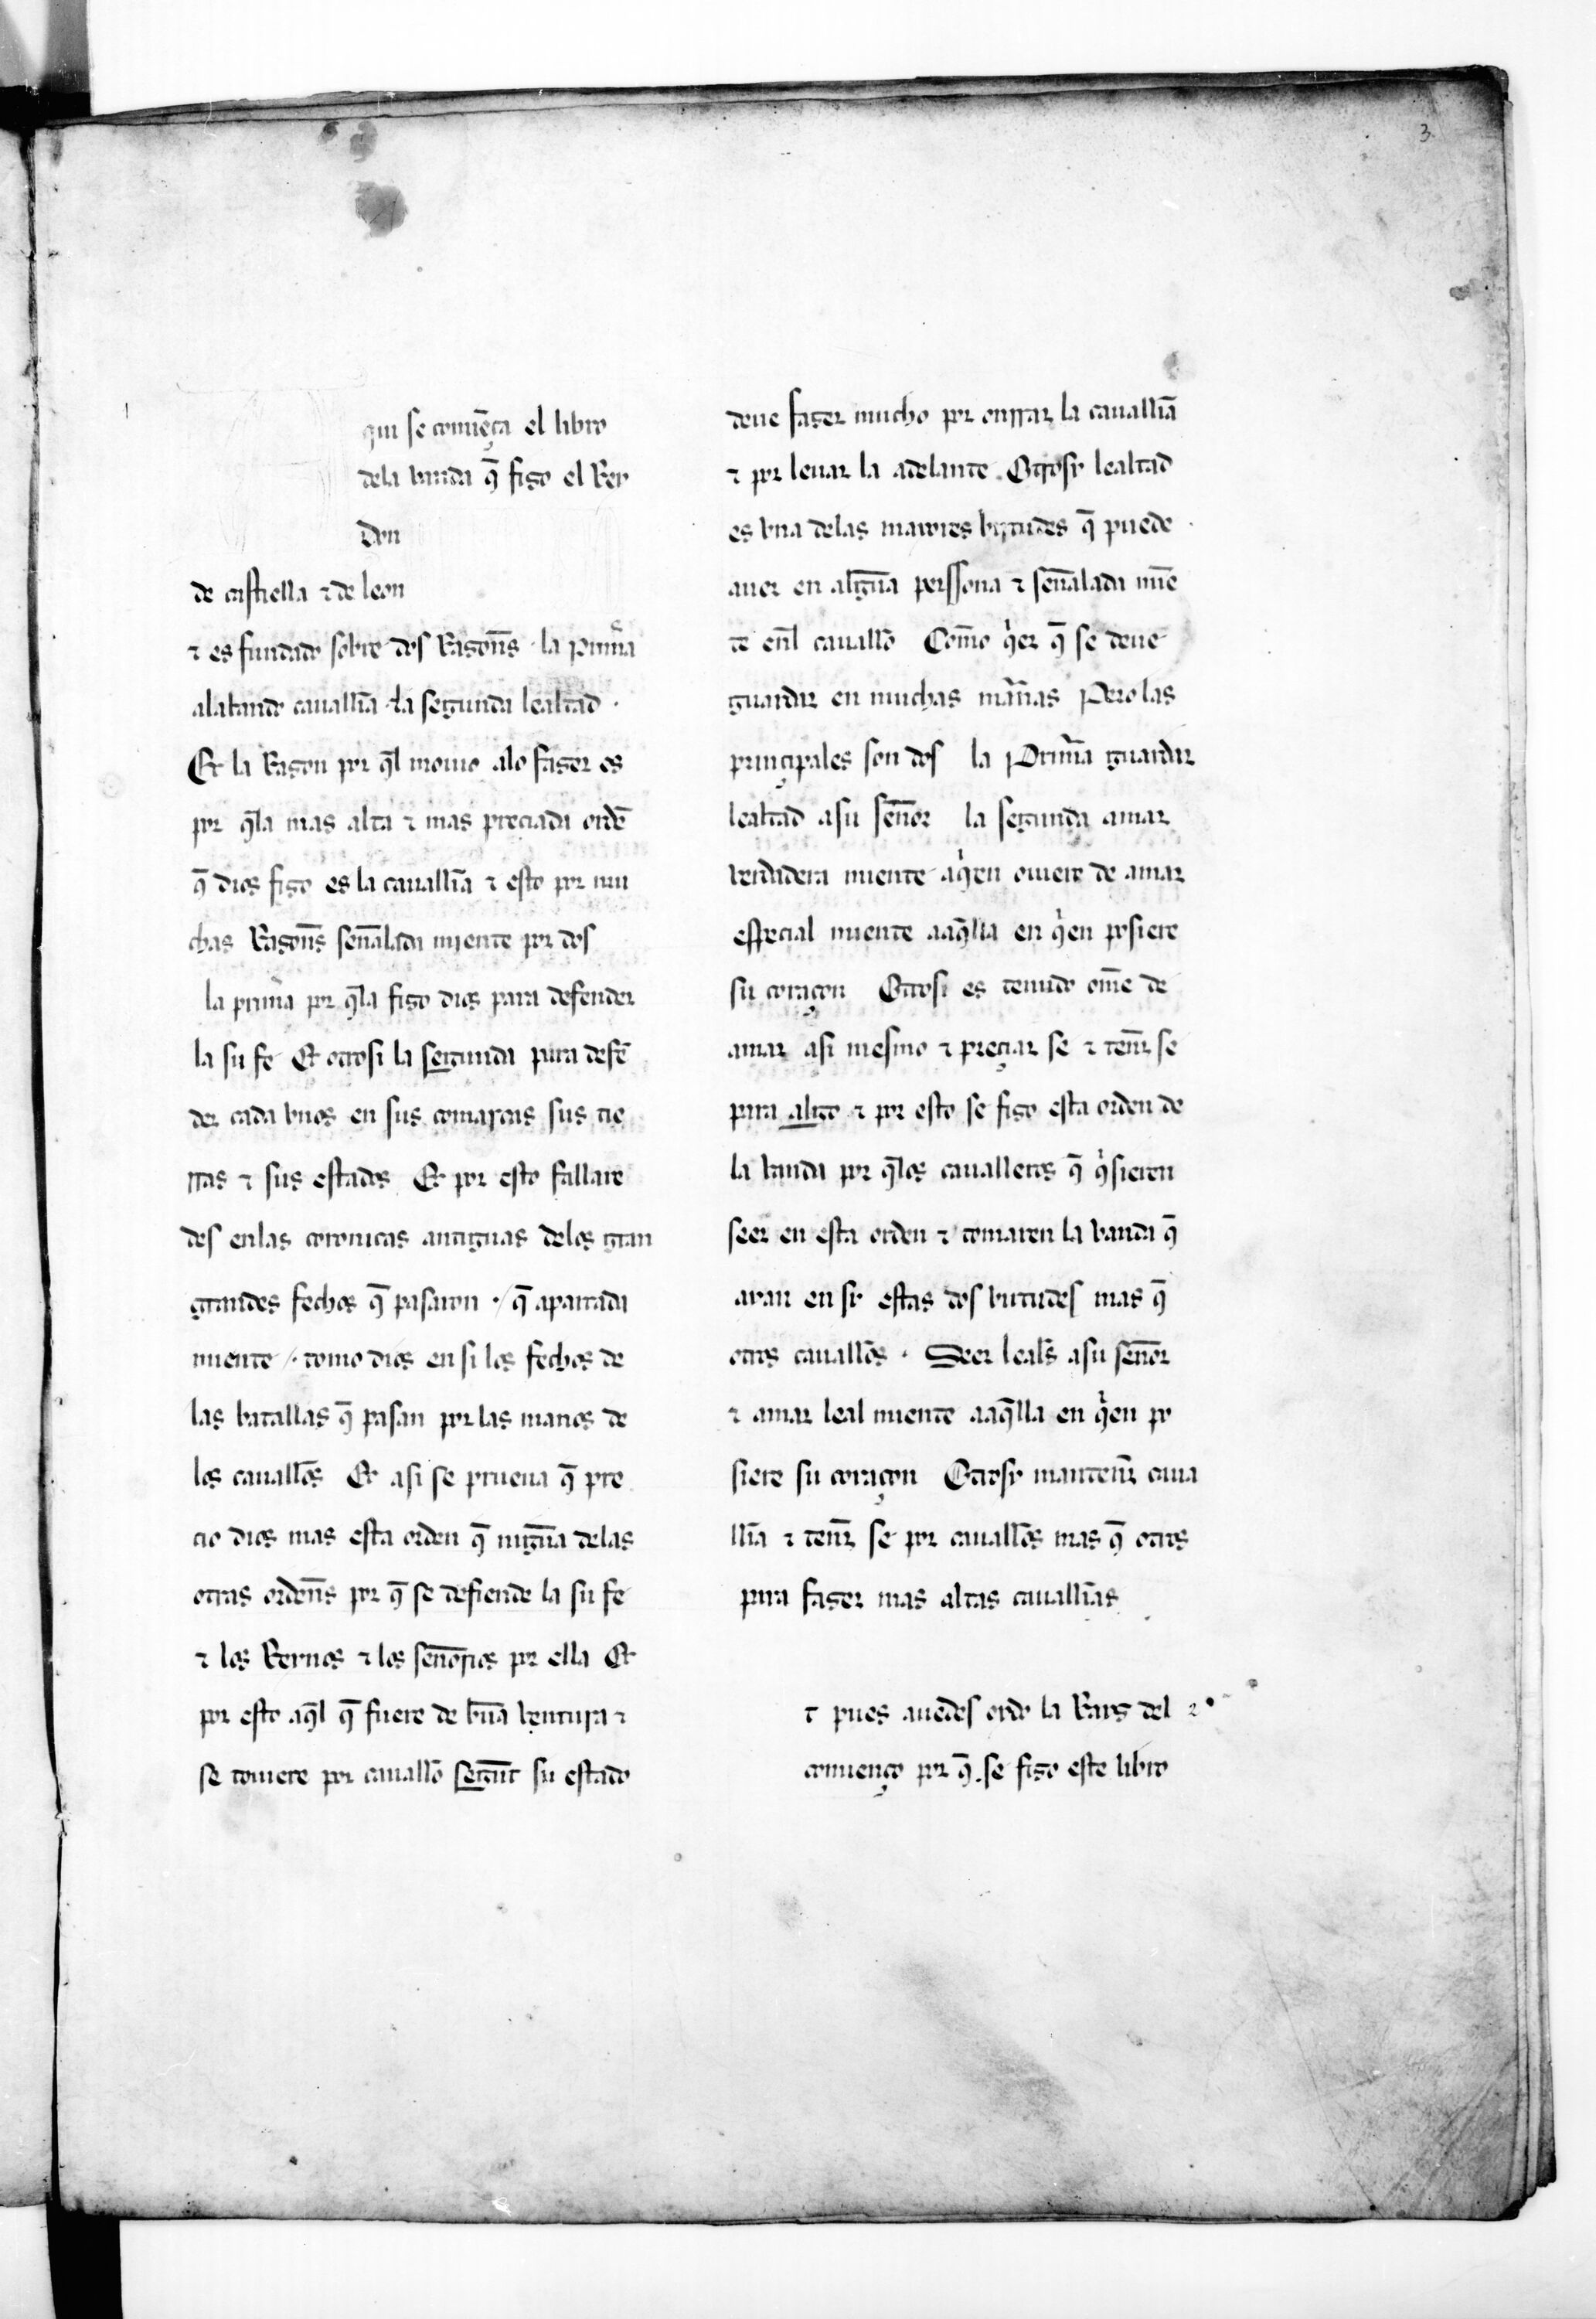 3
qui se comiẽça el libro
dela banda q̃ fizo el Rey
Don
de castiella ⁊ de leon
⁊ es fundado sobre dos Razon̄s · la prim̃a
alabando cauall̃ia · la segunda lealtad ·
Et la Razon por q̃l mouio alo fazer es
por q̃la mas alta ⁊ mas preciada ordẽ
q̃ dios fizo es la cauall̃ia ⁊ esto por mu
chas Razon̄s señalada miente por dos
la prim̃a por q̃la fizo dios para defender
la su fe Et otrosi la segunda para defẽ
der cada vnos en sus comarcas sus tie
rras ⁊ sus estados Et por esto fallare
des enlas coronicas antiguas delos gran
grandes fechos q̃ pasaron · / q̃ apartada
miente / · tomo dios en si los fechos de
las batallas q̃ pasan por las manos de
los cauall̃os Et asi se prueua q̃ pre
cio dios mas esta orden q̃ nīgūa delas
otras orden̄s por q̃ se defiende la su fe
⁊ los Reynos ⁊ los señorios por ella Et
por esto aq̃l q̃ fuere de bũa ventura ⁊
se touiere por cauall̃o segūt su estado
deue fazer mucho por onrrar la cauall̃ia
⁊ por leuar la adelante . Otrosy lealtad
es vna delas mayores virtudes q̃ puede
auer en algūa perssona ⁊ señalada miẽ
te enl̃ cauall̃o Com̃o q̓er q̃ se deue
guardar en muchas mañas Pero las
principales son dos la Prim̃a guardar
lealtad asu señor la segunda amar
verdadera miente aq̓en ouiere de amar
espeçial miente aaq̃lla en q̓en posiere
su coraçon Otrosi es tenido om̃e de
amar asi mesmo ⁊ preçiar se ⁊ ten̄r se
para algo ⁊ por esto se fizo esta orden de
la banda por q̃los caualleros q̃ q̓sieren
seer en esta orden ⁊ tomaren la banda q̃
ayan en sy estas dos virtudes mas q̃
otros cauall̃os · Seer leal̃s asu señor
⁊ amar leal miente aaq̃lla en q̓en po
siere su coraçon Otrosy manten̄r caua
ll̃ia ⁊ ten̄r se por cauall̃os mas q̃ otros
para fazer mas altas cauall̃ias
t pues auedes oydo la Rayz del 2°
comienço por q̃ . se fizo este libro